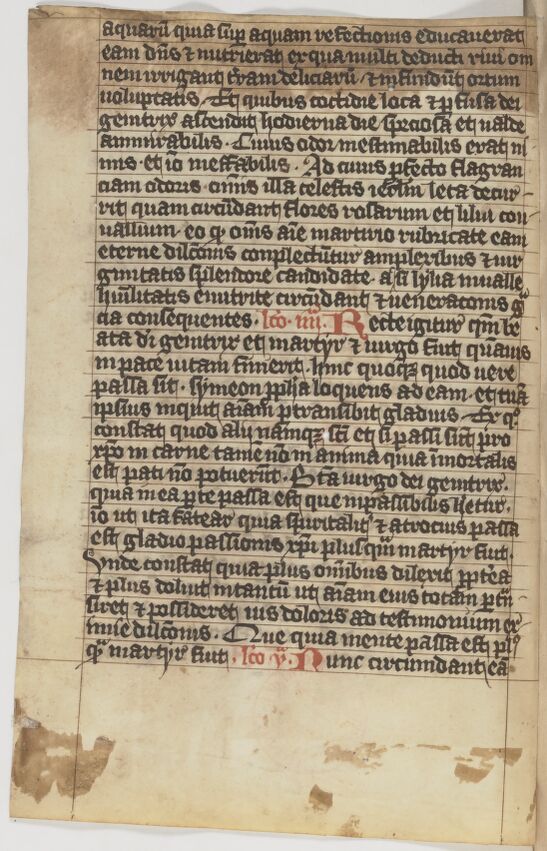 aquarū quia sup̄ aquam refectionis educauerat
eam dn̄s & nutrierat ex qua multi deducti riui om
nem irrigant t̄ram deliciarū · & infundūt ortum
uoluptatis · Et quibus cottidie loca & ꝑfusa dei
genitrix ascendit hodierna die speciosa et ualde
ammirabilis · Cuius odor inestimabilis erat ni
mis · et iō ineffabilis · Ad cuius ꝑfecto flagran
ciam odoris · om̄is illa celestis ierl̄m leta decur
rit quam circūdant flores rosarum et lilia con
uallium · eo ꝙ om̄s aīe martirio rubricate eam
eterne dil̄conis conplectūtur amplexibus & uir
ginitatis splendore candidate · asi lylia in ualle
hūilitatis enutrite circūdant & ueneraconis gͣ
cia consequentes · lc̄o · iiij · Recte igitur qm̄ be
ata di genitrix et martyr & uirgo fuit quāuis
in pace uitam finierit · hinc quoqꝫ quod uere
passa sit · symeon ꝓpha loquens ad eam · et tuā
ipsius inquit aīam ꝑtransibit gladius · Ex qͦ
constat quod alii namqꝫ sc̄i et si passi sūt pro
xp̄o in carne tam̄e nō in anima quia īmortalis
est pati nō potuerūt · Bt̄a uirgo dei genitrix ·
quia in ea ꝑte passa est que inpassibilis hetur ·
iō ut ita fatear quia spūritalit̄ & atrocius passa
est gladio passionis xp̄i plusqm̄ martyr fuit ·
Vnde constat quia plus omībus dilexit ꝓpt̄ea
& plus doluit intantū ut aīam eius totam ꝑtn̄
siret & possideret uis doloris ad testimonium ex
imie dil̄conis · Que quia mente passa est plꝰ
qͣ martyr fuit · lc̄o · v̄ · Nunc circumdant eā